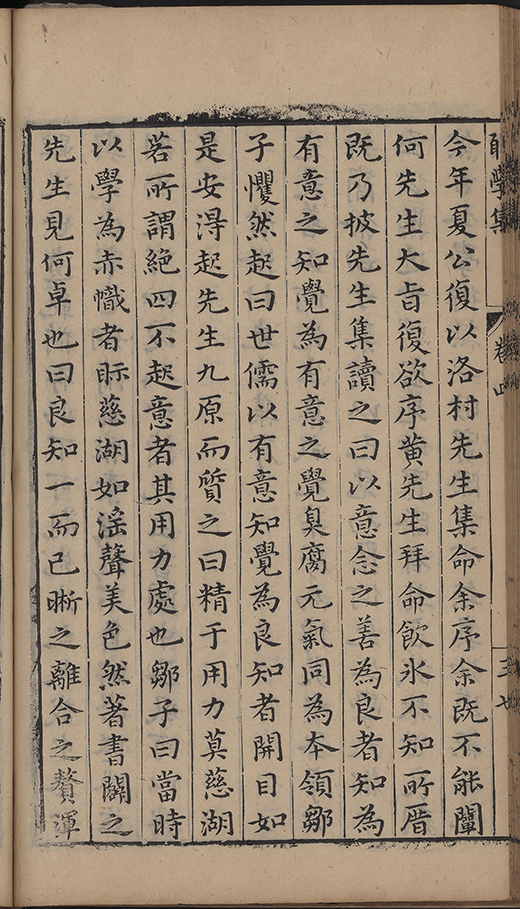 學集 卷四 三七
今年夏公復以洛村先生集命余序余既不能闡
何先生大旨復欲序黄先生拜命飲氷不知所厝
既乃披先生集讀之曰以意念之善為良者知為
有意之知覺為有意之覺臭腐元氣同為本領鄒
子懼然起曰世儒以有意知覺為良知者開目如
是安得起先生九原而質之曰精于用力莫慈湖
若所謂絶四不起意者其用力處也鄒子曰當時
以學為赤幟者眎慈湖如滛聲美色然著書闢之
先生見何卓也曰良知一而已晣之離合之贅渾